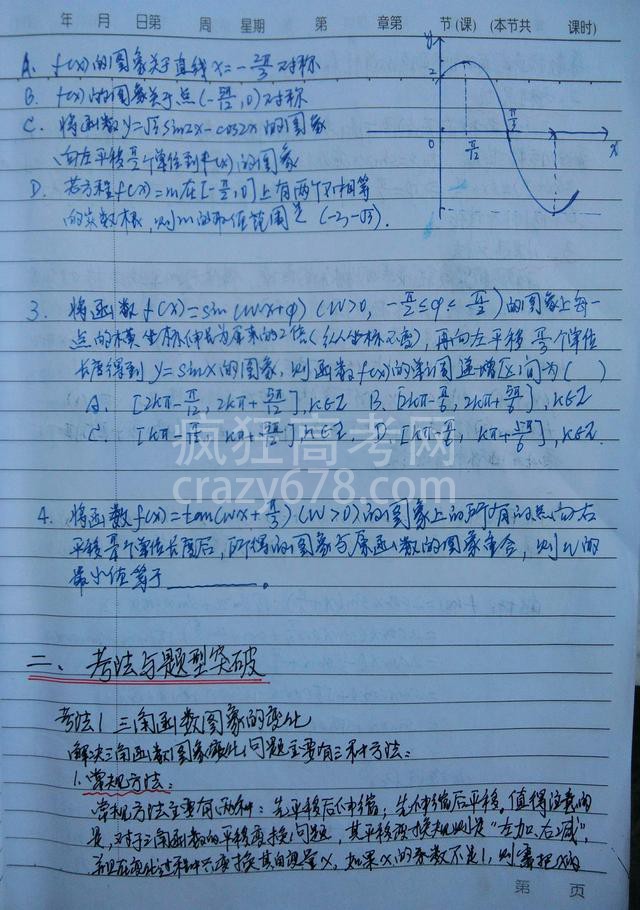 年 月 日第 周 星期 第 章第 节(课) (本节共 课时)
A. f(x)的图象关于直线x=-2π/3对称
B. f(x)的图象关于点(-5π/12,0)对称
C. 将函数y=√3sin2x-cos2x的图象
向左平移π/2个单位到f(x)的图象
D. 若方程f(x)=m在[-π/2,0]上有两个不相等
的实数根,则m的取值范围是 (-2,-√3).
y
2
0
π/12
π/3
x
3. 将函数f(x)=sin(wx+φ) (w>0, -π/2≤φ<π/2)的图象上每一
点的横坐标伸长为原来的2倍(纵坐标不变),再向左平移 个单位
长度得到y=sinx的图象,则函数f(x)的单调递增区间为( )
A. [2kπ-π/12, 2kπ+5π/12],k∈Z B. [2kπ-π/6, 2kπ+5π/6],k∈Z
C. [kπ-π/12, kπ+5π/12],k∈Z. D. [kπ-π/6, kπ+5π/6],k∈Z.
疯狂高考网
crazy678.com
4. 将函数f(x)=tan(wx+π/3) (w>0)的图象上的所有的点向右
平移 个单位长度后,所得的图象与原函数的图象重合,则w的
最小值等于________。
二、考法与题型突破
考法1 三角函数图象的变化
解决三角函数图象变化问题主要有三种方法:
1.常规方法:
常规方法主要有两种:先平移后伸缩,先伸缩后平移。值得注意的
是,对于三角函数的平移变换问题,其平移变换规则是"左加、右减",
并且在变化过程中只变换其自变量x,如果x的系数不是1,则需把x的
第 页